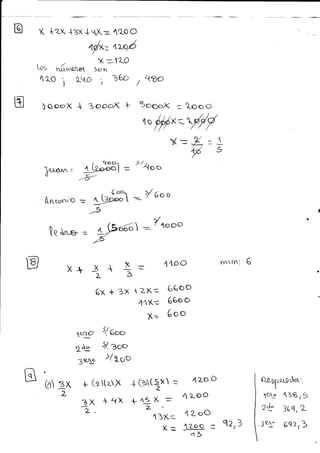 6 X + 2X + 3X + 4X = 1200
10X = 1200
X = 120
los números son
120 ; 240 ; 360 , 480
7 2000X + 3000X + 5000X = 2000
10 000X = 2000
X = 2/10 = 1/5
Juan = 1/5 (2000) = S/400
Antonio = 1/5 (3000) = S/600
Pedro = 1/5 (5000) = S/1000
8 X + X/2 + X/3 = 1100 mcm: 6
6X + 3X + 2X = 6600
11X = 6600
X = 600
1ero S/.600
2do S/.300
3ero S/200
9. (1) 3X/2 + (2)(2)X + (3)(5X/2) = 1200
3X/2 + 4X + 15X/2 = 1200
13X = 1200
X = 1200/13 = 92,3
Respuesta:
1ero 138,5
2do 369,2
3er 692,3